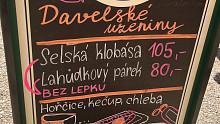 Davelské
uzeniny
Selská klobása 105,-
Lahůdkový párek 80,-
BEZ LEPKU
Hořčice, kečup, chleba